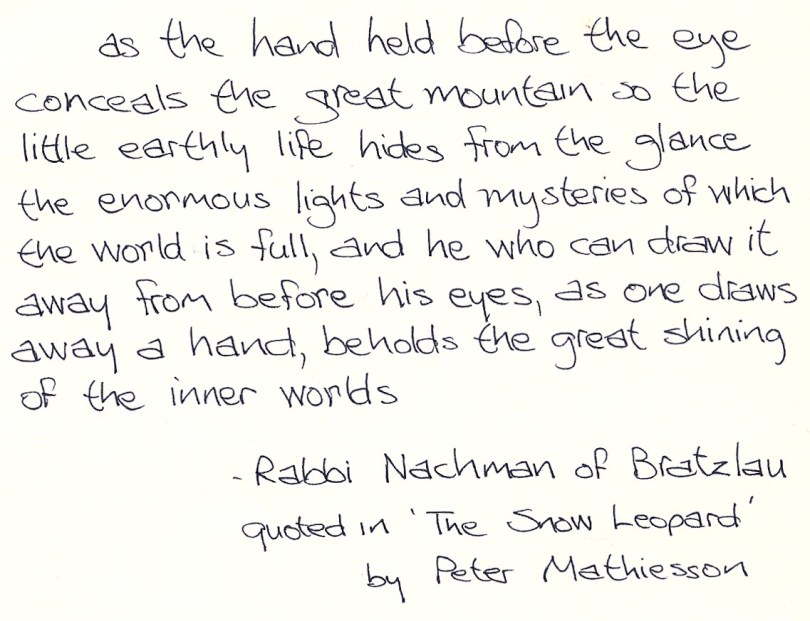 as the hand held before the eye
conceals the great mountain so the
little earthly life hides from the glance
the enormous lights and mysteries of which
the world is full, and he who can draw it
away from before his eyes, as one draws
away a hand, beholds the great shining
of the inner worlds
- Rabbi Nachman of Bratzlau
quoted in 'The Snow Leopard'
by Peter Mathiesson